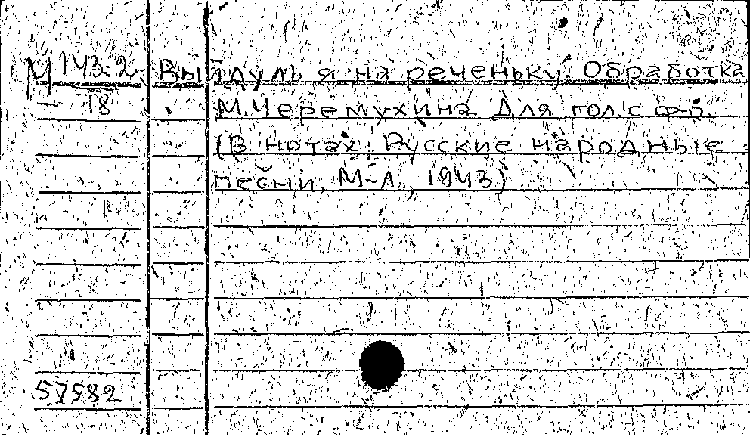 М 143-2 Выйдуль я на реченьку. Обработка
18 М. Черемухина. Для гол. с ф-п.
(В нотах: Русские народные
песни, М-Л, 1943)
57582